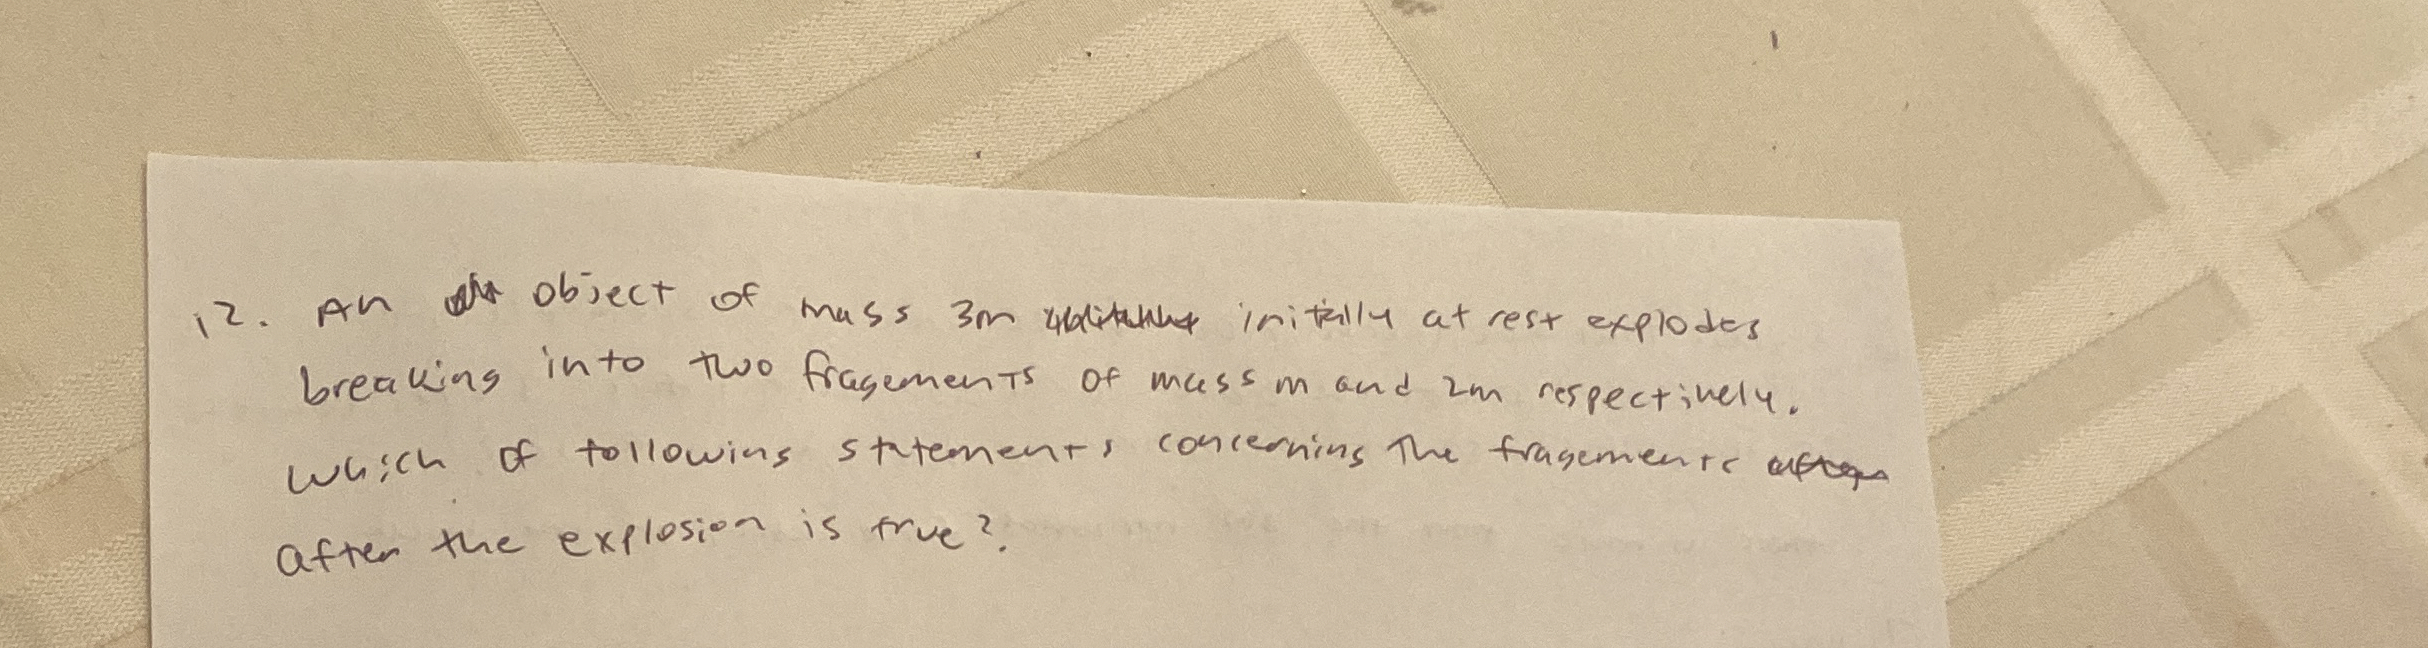 12. An object of mass 3m initilly at rest explodes
breaking into two fragements of mass m and 2m respectively.
which of following statements concerning the fragements
after the explosion is true?.